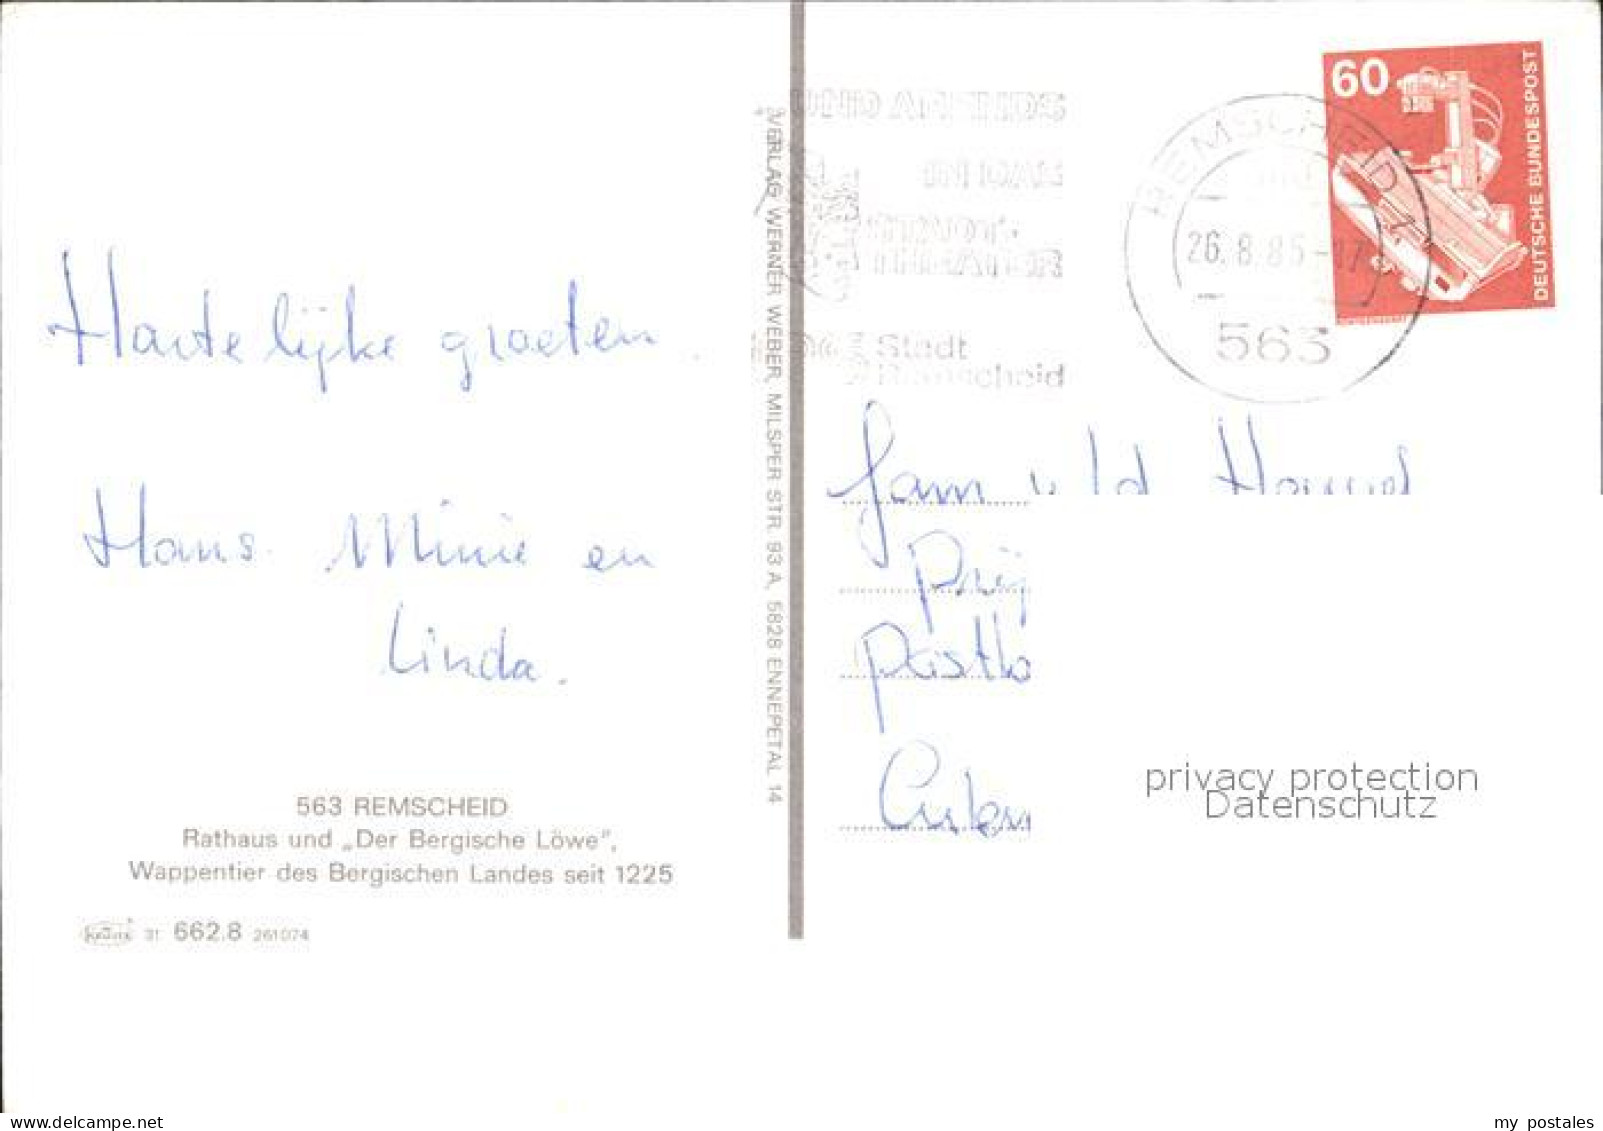 Hartelijke groeten
Hans. Minie en
Linda.
563 REMSCHEID
Rathaus und „Der Bergische Löwe”,
Wappentier des Bergischen Landes seit 1225
31 662.8 261074
VERLAG WERNER WEBER, MILSPER STR. 93 A, 5828 ENNEPETAL 14
UND ABENDS
IN DAS
THEATER
Stadt
Remscheid
REMSCHEID 1
26.8.85-17
563
60
DEUTSCHE BUNDESPOST
Fam
privacy protection
Datenschutz
delcampe.net
my postales